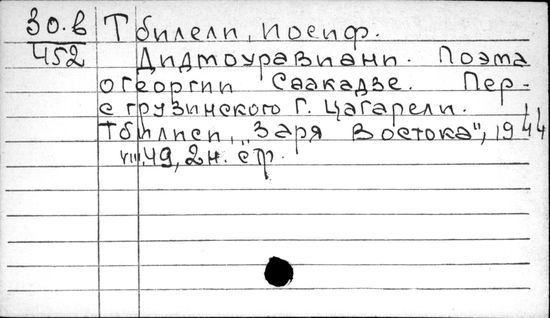 30.в Тбилели, Иосиф.
452 Дидмоуравиани. Поэма
о Георгии Саакадзе. Пер.
с грузинского Г. Цагарели.
Тбилиси, "Заря Востока", 1944
VIII, 49, 2 н. стр.